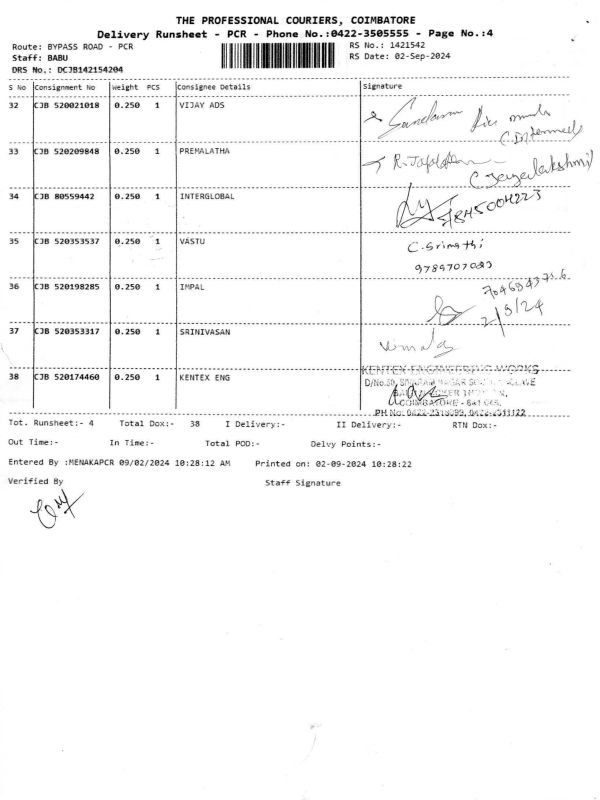 THE PROFESSIONAL COURIERS, COIMBATORE
Delivery Runsheet - PCR - Phone No.:0422-3505555 - Page No.:4
Route: BYPASS ROAD - PCR RS No.: 1421542
Staff: BABU RS Date: 02-Sep-2024
DRS No.: DCJB142154204
S No Consignment No Weight PCS Consignee Details Signature
32 CJB 520021018 0.250 1 VIJAY ADS
33 CJB 520209848 0.250 1 PREMALATHA
34 CJB 80559442 0.250 1 INTERGLOBAL
35 CJB 520353537 0.250 1 VASTU C. Srimathi
36 CJB 520198285 0.250 1 IMPAL
2/9/24
37 CJB 520353317 0.250 1 SRINIVASAN
38 CJB 520174460 0.250 1 KENTEX ENG KENTEX ENGINEERING WORKS
COIMBATORE
Tot. Runsheet:- 4 Total Dox:- 38 I Delivery:- II Delivery:- RTN Dox:-
Out Time:- In Time:- Total POD:- Delvy Points:-
Entered By :MENAKAPCR 09/02/2024 10:28:12 AM Printed on: 02-09-2024 10:28:22
Verified By Staff Signature